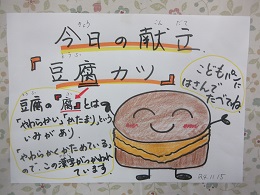 今日の献立
きょう こんだて
『豆腐カツ』
とうふ
こどもパンに
はさんで
たべてね。
豆腐の『腐』とは
「やわらかい」「かたまり」という
いみがあり、
「やわらかくかためている」
ので、この漢字がつかわれ
ています。
24.11.15